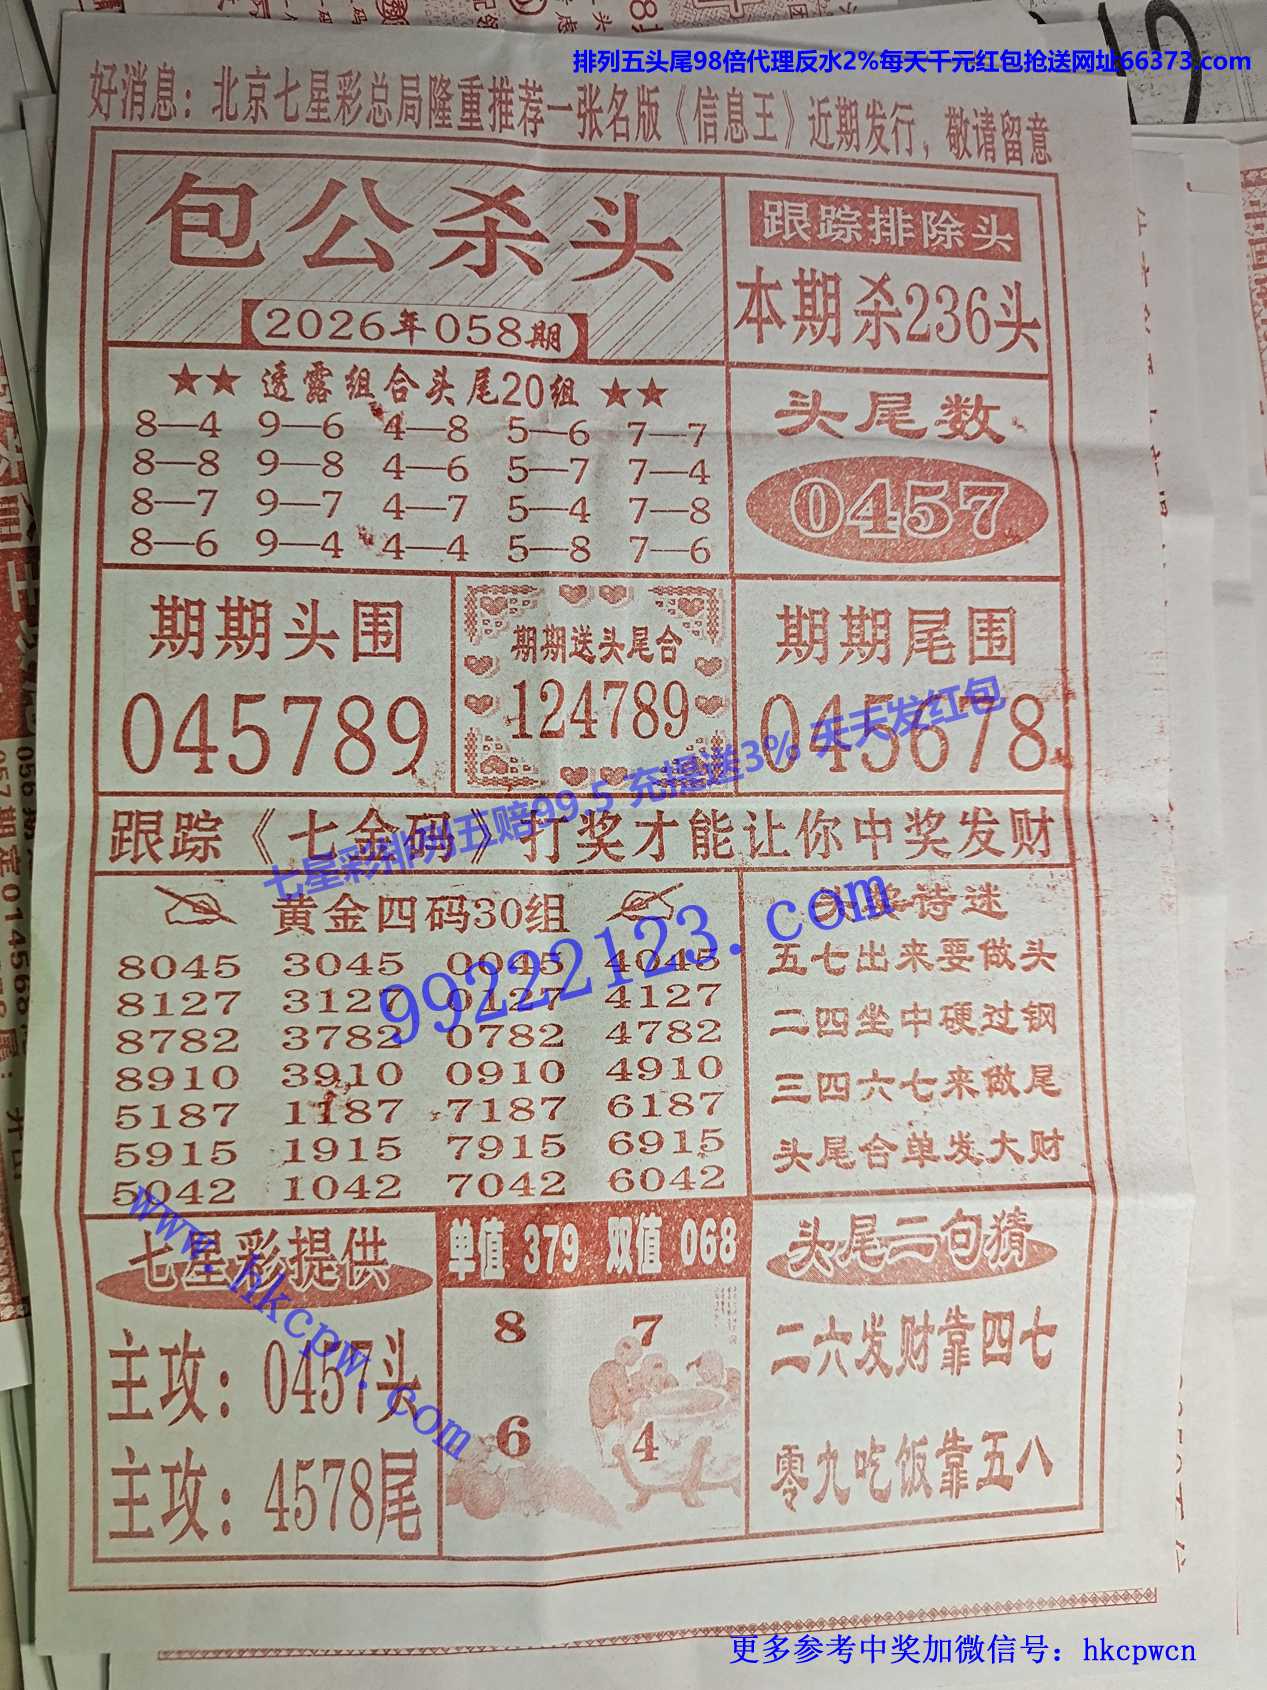 排列五头尾98倍代理反水2%每天千元红包抢送网址66373.com
好消息：北京七星彩总局隆重推荐一张名版《信息王》近期发行，敬请留意
包公杀头
2026年058期
跟踪排除头
本期杀236头
★★ 透露组合头尾20组 ★★
8—4 9—6 4—8 5—6 7—7
8—8 9—8 4—6 5—7 7—4
8—7 9—7 4—7 5—4 7—8
8—6 9—4 4—4 5—8 7—6
头尾数
0457
期期头围
045789
期期送头尾合
124789
期期尾围
045678
七星彩排列五赔99.5 充提送3% 天天发红包
跟踪《七金码》打奖才能让你中奖发财
黄金四码30组
8045 3045 0045 4045
8127 3127 0127 4127
8782 3782 0782 4782
8910 3910 0910 4910
5187 1187 7187 6187
5915 1915 7915 6915
5042 1042 7042 6042
99222123.com
头奖诗迷
五七出来要做头
二四坐中硬过钢
三四六七来做尾
头尾合单发大财
七星彩提供
主攻：0457头
主攻：4578尾
www.hkcpw.com
单值 379 双值 068
8 7
6 4
头尾二句猜
二六发财靠四七
零九吃饭靠五八
更多参考中奖加微信号：hkcpwcn